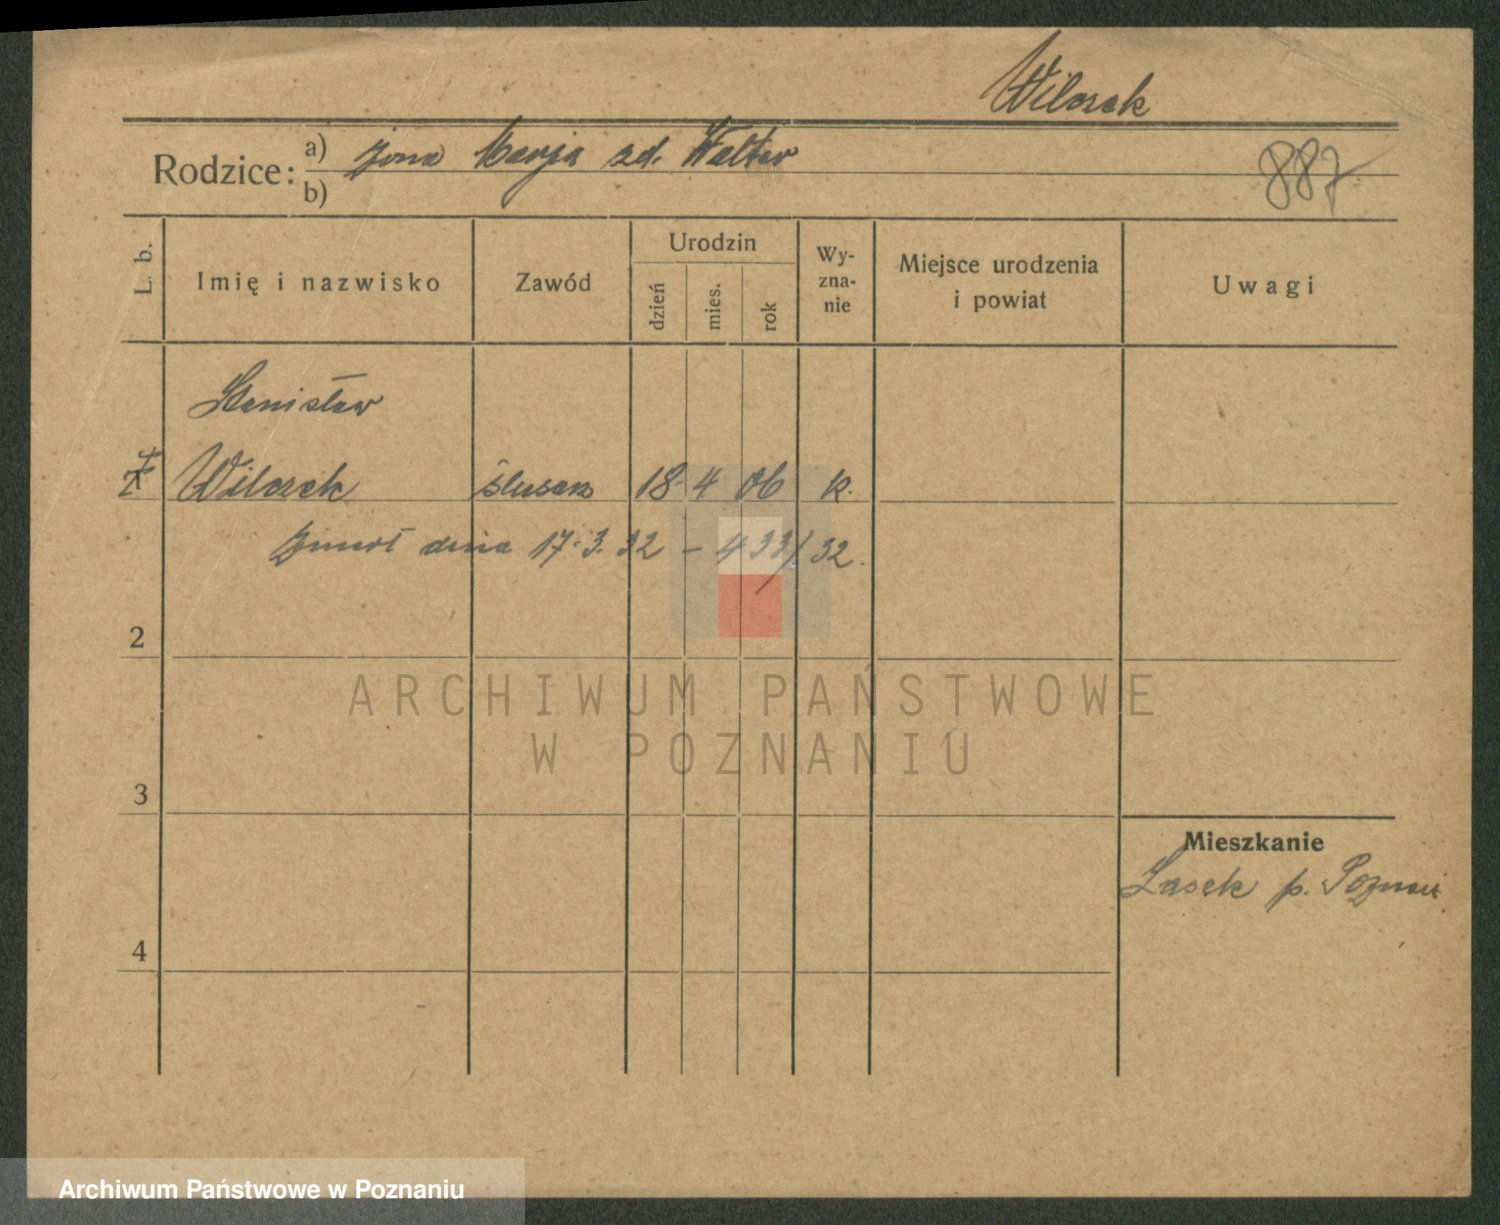 Wilczek
Rodzice: a) żona Marja zd. Walter
b)
887
L. b.
Imię i nazwisko
Zawód
Urodzin
dzień
mies.
rok
Wy-
zna-
nie
Miejsce urodzenia
i powiat
Uwagi
Stanisław
Wilczek ślusarz 18. 4 06 k.
Zmarł dnia 17. 3. 32 – 433/32.
2
ARCHIWUM PAŃSTWOWE
W POZNANIU
3
Mieszkanie
Lasek p. Poznań
4
Archiwum Państwowe w Poznaniu